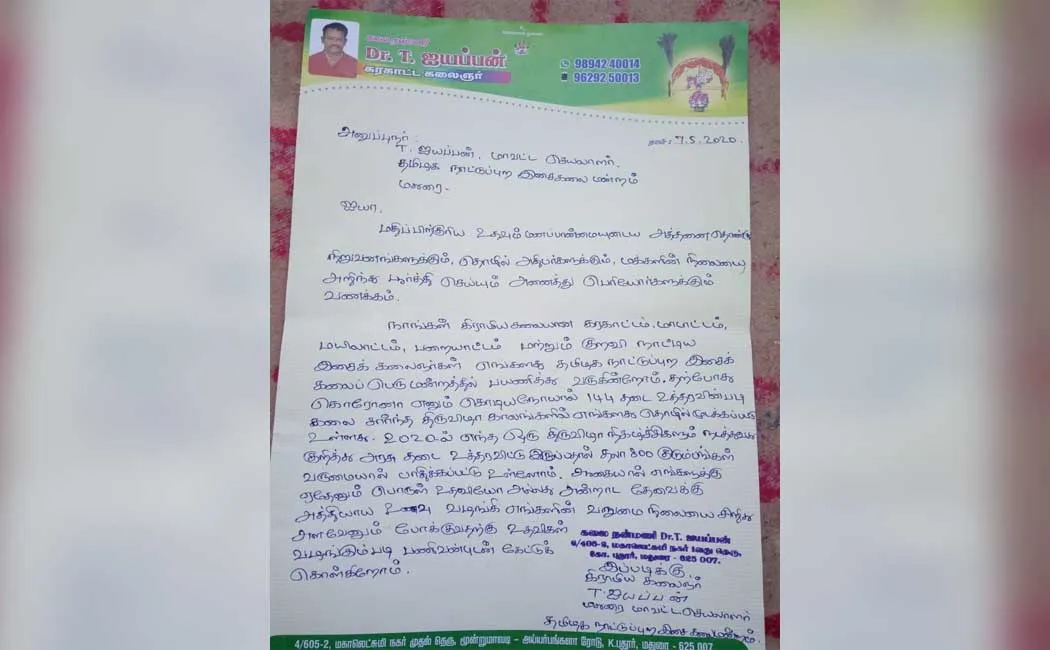 கலை நன்மணி
Dr. T. ஐயப்பன்
கரகாட்ட கலைஞர்
98942 40014
96292 50013
அனுப்புநர் :
நாள் : 7.5.2020.
T. ஐயப்பன், மாவட்ட செயலாளர்.
தமிழக நாட்டுப்புற இசைகலை மன்றம்
மதுரை-
ஐயா,
மதிப்பிற்குரிய உதவும் மனப்பான்மையுடைய அத்தனை தொண்டு
நிறுவனங்களுக்கும், தொழில் அதிபர்களுக்கும், மக்களின் நிலையை
அறிந்து பூர்த்தி செய்யும் அணைத்து பெரியோர்களுக்கும்
வணக்கம்.
நாங்கள் கிராமிய கலையான கரகாட்டம். மாடாட்டம்,
மயிலாட்டம், பறையாட்டம் மற்றும் குறவி நாட்டிய
இசைக் கலைஞர்கள் எங்களது தமிழக நாட்டுப்புற இசைக்
கலைப் பெரு மன்றத்தில் பயணித்து வருகின்றோம். தற்போது
கொரோனா எனும் கொடியநோயால் 144 தடை உத்தரவின்படி
கலை சார்ந்த திருவிழா காலங்களில் எங்களது தொழில் முடக்கப்பட்டு
உள்ளது. 2020-ல் எந்த ஒரு திருவிழா நிகழ்ச்சிகளும் நடத்துவது
குறித்து அரசு தடை உத்தரவிட்டு இருப்பதால் 300 குடும்பங்கள்
வறுமையால் பாதிக்கப்பட்டு உள்ளோம். ஆகையால் எங்களுக்கு
ஏதேனும் பொருள் உதவியோ அல்லது அன்றாட தேவைக்கு
அத்தியாய உணவு வழங்கி எங்களின் வறுமை நிலையை சிறிது
அளவேனும் போக்குவதற்கு உதவிகள்
வழங்கும்படி பணிவன்புடன் கேட்டுக்
கொள்கிறோம்.
கலை நன்மணி Dr.T. ஐயப்பன்
4/605-2, மகாலெட்சுமி நகர் 1வது தெரு,
கோ. புதூர், மதுரை - 625 007.
இப்படிக்கு,
கிராமிய கலைஞர்
T. ஐயப்பன்
மதுரை மாவட்ட செயலாளர்
தமிழக நாட்டுப்புற இசை கலை மன்றம்.
4/605-2, மகாலெட்சுமி நகர் முதல் தெரு, மூன்றுமாவடி – அய்யர்பங்களா ரோடு, K.புதூர், மதுரை - 625 007.